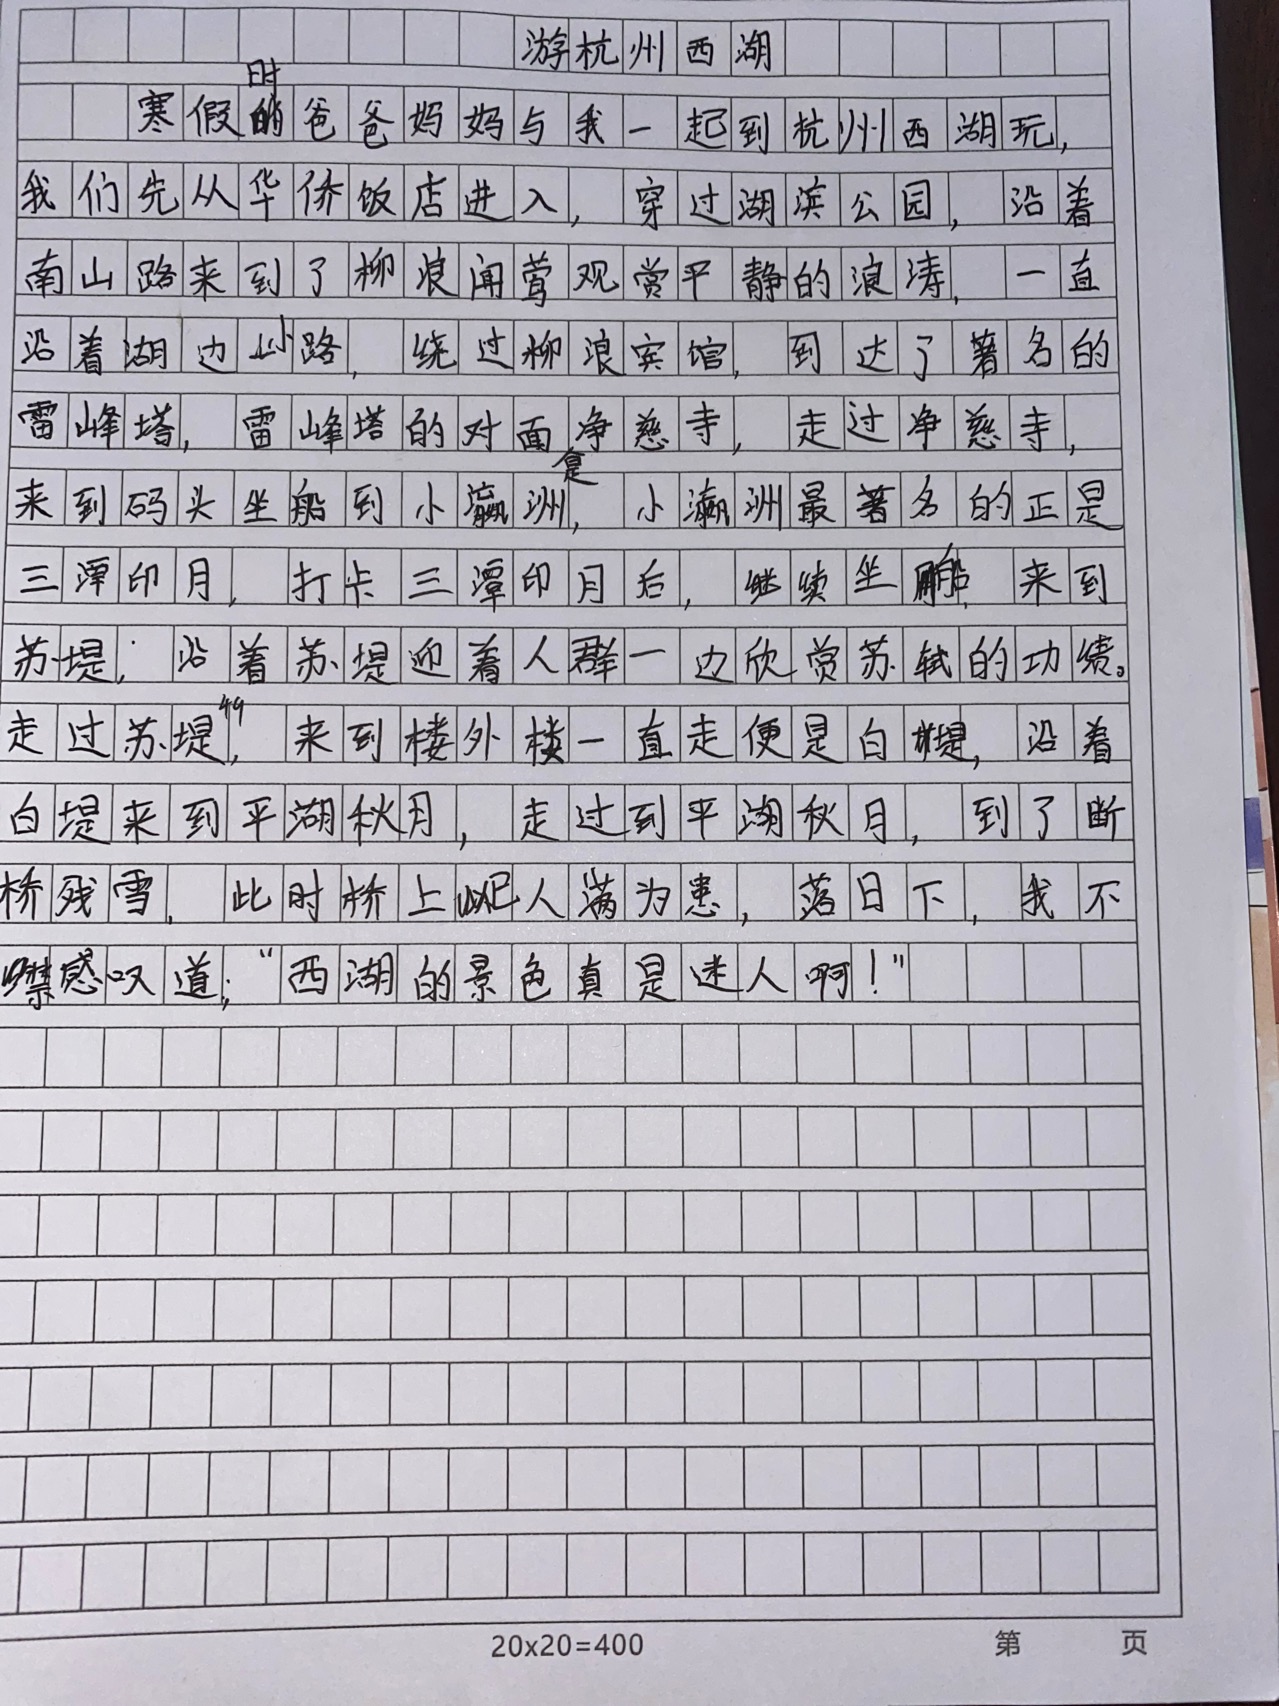 游杭州西湖
寒假时爸爸妈妈与我一起到杭州西湖玩，
我们先从华侨饭店进入，穿过湖滨公园，沿着
南山路来到了柳浪闻莺观赏平静的浪涛，一直
沿着湖边小路，绕过柳浪宾馆，到达了著名的
雷峰塔，雷峰塔的对面是净慈寺，走过净慈寺，
来到码头坐船到小瀛洲，小瀛洲最著名的正是
三潭印月，打卡三潭印月后，继续坐船，来到
苏堤，沿着苏堤迎着人群一边欣赏苏轼的功绩。
走过苏堤，来到楼外楼一直走便是白堤，沿着
白堤来到平湖秋月，走过到平湖秋月，到了断
桥残雪，此时桥上已人满为患，落日下，我不
禁感叹道：“西湖的景色真是迷人啊！”
20x20=400
第 页